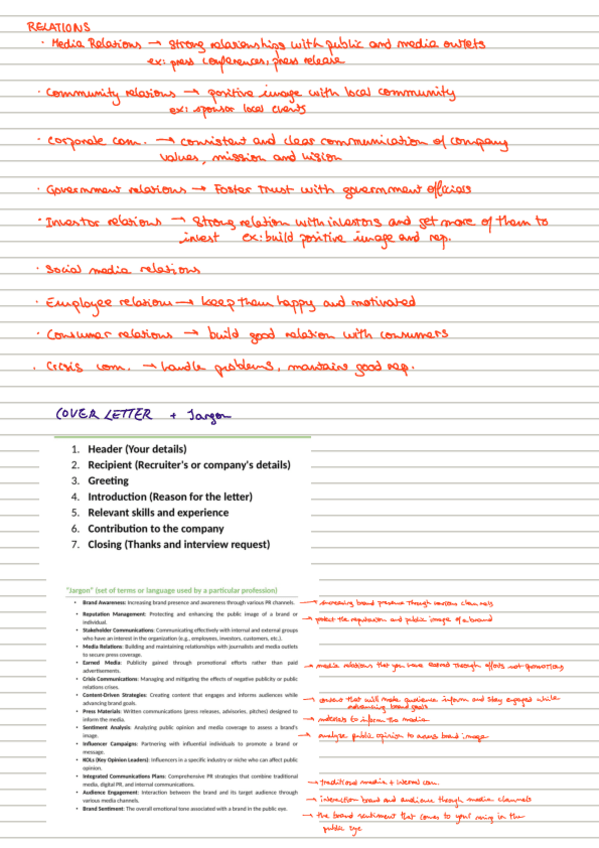 RELATIONS
· Media Relations → strong relationships with public and media outlets
ex: press conferences, press release
· Community relations → positive image with local community
ex: sponsor local events
· Corporate com. → consistent and clear communication of company
values, mission and vision
· Government relations → Foster Trust with government officials
· Investor relations → Strong relation with investors and get more of them to
invest ex: build positive image and rep.
· Social media relations
· Employee relations → keep them happy and motivated
· Consumer relations → build good relation with consumers
· Crisis com. → handle problems, maintains good rep.
COVER LETTER + Jargon
1. Header (Your details)
2. Recipient (Recruiter's or company's details)
3. Greeting
4. Introduction (Reason for the letter)
5. Relevant skills and experience
6. Contribution to the company
7. Closing (Thanks and interview request)
"Jargon" (set of terms or language used by a particular profession)
• Brand Awareness: Increasing brand presence and awareness through various PR channels. → increasing brand presence through various channels
• Reputation Management: Protecting and enhancing the public image of a brand or → protect the reputation and public image of a brand
individual.
• Stakeholder Communications: Communicating effectively with internal and external groups
who have an interest in the organization (e.g., employees, investors, customers, etc.).
• Media Relations: Building and maintaining relationships with journalists and media outlets
to secure press coverage.
• Earned Media: Publicity gained through promotional efforts rather than paid → media relations that you have earned through efforts not promotions
advertisements.
• Crisis Communications: Managing and mitigating the effects of negative publicity or public
relations crises.
• Content-Driven Strategies: Creating content that engages and informs audiences while → content that will make audience inform and stay engaged while
advancing brand goals. advancing brand goals
• Press Materials: Written communications (press releases, advisories, pitches) designed to → materials to inform the media
inform the media.
• Sentiment Analysis: Analyzing public opinion and media coverage to assess a brand's → analyze public opinion to assess brand image
image.
• Influencer Campaigns: Partnering with influential individuals to promote a brand or
message.
• KOLs (Key Opinion Leaders): Influencers in a specific industry or niche who can affect public
opinion.
• Integrated Communications Plans: Comprehensive PR strategies that combine traditional → traditional media + internal com.
media, digital PR, and internal communications.
• Audience Engagement: Interaction between the brand and its target audience through → interaction brand and audience through media channels
various media channels.
• Brand Sentiment: The overall emotional tone associated with a brand in the public eye. → the brand sentiment that comes to your in the
public eye